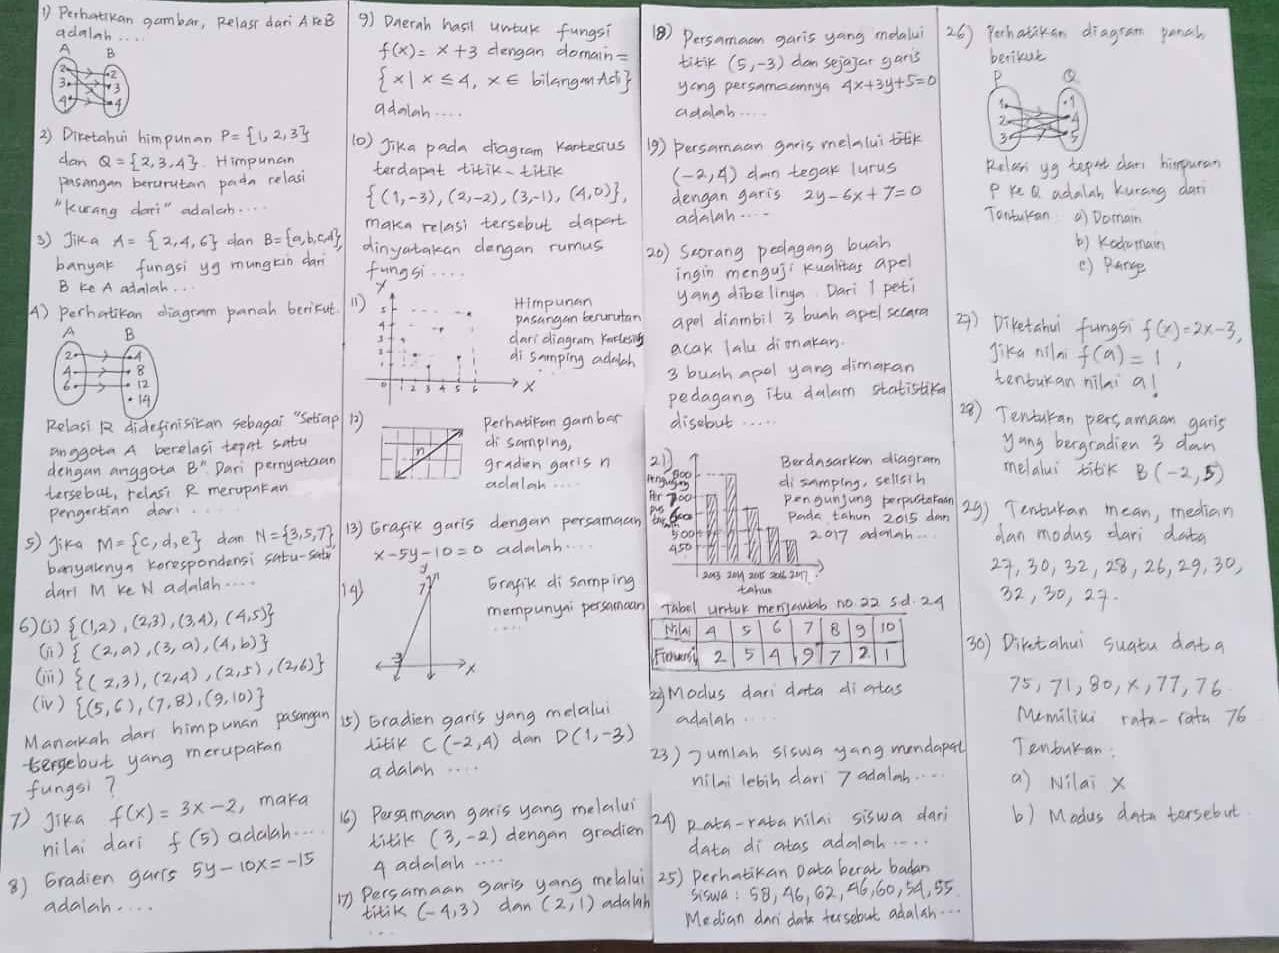 1) Perhatikan gambar, Relasi dari A ke B
adalah ....
A B
2 2
3 3
4 4
2) Diketahui himpunan P = {1, 2, 3}
dan Q = {2, 3, 4}. Himpunan
pasangan berurutan pada relasi
"kurang dari" adalah ....
3) Jika A = {2, 4, 6} dan B = {a, b, c, d},
banyak fungsi yg mungkin dari
B ke A adalah ...
4) Perhatikan diagram panah berikut.
A B
2 4
4 8
6 12
14
Relasi R didefinisikan sebagai "Setiap
anggota A berelasi tepat satu
dengan anggota B". Dari pernyataan
tersebut, relasi R merupakan
pengertian dari .....
5) Jika M = {c, d, e} dan N = {3, 5, 7}
banyaknya korespondensi satu-satu
dari M ke N adalah ....
6) (i) {(1,2), (2,3), (3,4), (4,5)}
(ii) {(2,a), (3,a), (4,b)}
(iii) {(2,3), (2,4), (2,5), (2,6)}
(iv) {(5,6), (7,8), (9,10)}
Manakah dari himpunan pasangan
tersebut yang merupakan
fungsi ?
7) Jika f(x) = 3x - 2, maka
nilai dari f(5) adalah ....
8) Gradien garis 5y - 10x = -15
adalah ....
9) Daerah hasil untuk fungsi
f(x) = x + 3 dengan domain =
{x | x ≤ 4, x ∈ bilangan Asli}
adalah ....
10) Jika pada diagram kartesius
terdapat titik-titik
{(1,-3), (2,-2), (3,-1), (4,0)},
maka relasi tersebut dapat
dinyatakan dengan rumus
fungsi ....
11) Himpunan
pasangan berurutan
dari diagram kartesius
di samping adalah
Y
5
4
3
2
1
0 1 2 3 4 5 6 X
12) Perhatikan gambar
di samping,
gradien garis n
adalah ....
n
13) Grafik garis dengan persamaan
x - 5y - 10 = 0 adalah ....
14) Grafik di samping
mempunyai persamaan
....
y
7
-3
x
15) Gradien garis yang melalui
titik C (-2,4) dan D(1,-3)
adalah ....
16) Persamaan garis yang melalui
titik (3,-2) dengan gradien
4 adalah ....
17) Persamaan garis yang melalui
titik (-4,3) dan (2,1) adalah
...
18) Persamaan garis yang melalui
titik (5,-3) dan sejajar garis
yang persamaannya 4x+3y+5=0
adalah ....
19) Persamaan garis melalui titik
(-2,4) dan tegak lurus
dengan garis 2y - 6x + 7 = 0
adalah ....
20) Seorang pedagang buah
ingin menguji kualitas apel
yang dibelinya. Dari 1 peti
apel diambil 3 buah apel secara
acak lalu dimakan.
3 buah apel yang dimakan
pedagang itu dalam statistika
disebut .....
21) Berdasarkan diagram
di samping, selisih
pengunjung perpustakaan
pada tahun 2015 dan
2017 adalah ...
800
700
600
500
450
2013 2014 2015 2016 2017
tahun
Tabel untuk menjawab no. 22 s.d. 24
Nilai 4 5 6 7 8 9 10
Frekuensi 2 5 4 9 7 2 1
22) Modus dari data di atas
adalah ....
23) Jumlah siswa yang mendapat
nilai lebih dari 7 adalah ....
24) Rata-rata nilai siswa dari
data di atas adalah ....
25) Perhatikan Data berat badan
siswa : 58, 46, 62, 46, 60, 54, 55
Median dari data tersebut adalah ...
26) Perhatikan diagram panah
berikut
P Q
1 1
2 4
3 5
Relasi yg tepat dari himpunan
P ke Q adalah kurang dari
Tentukan : a) Domain
b) Kodomain
c) Range
27) Diketahui fungsi f(x) = 2x - 3,
Jika nilai f(a) = 1,
tentukan nilai a!
28) Tentukan persamaan garis
yang bergradien 3 dan
melalui titik B (-2, 5)
29) Tentukan mean, median
dan modus dari data
27, 30, 32, 28, 26, 29, 30,
32, 30, 27.
30) Diketahui suatu data
75, 71, 80, x, 77, 76.
Memiliki rata-rata 76
Tentukan :
a) Nilai x
b) Modus data tersebut.